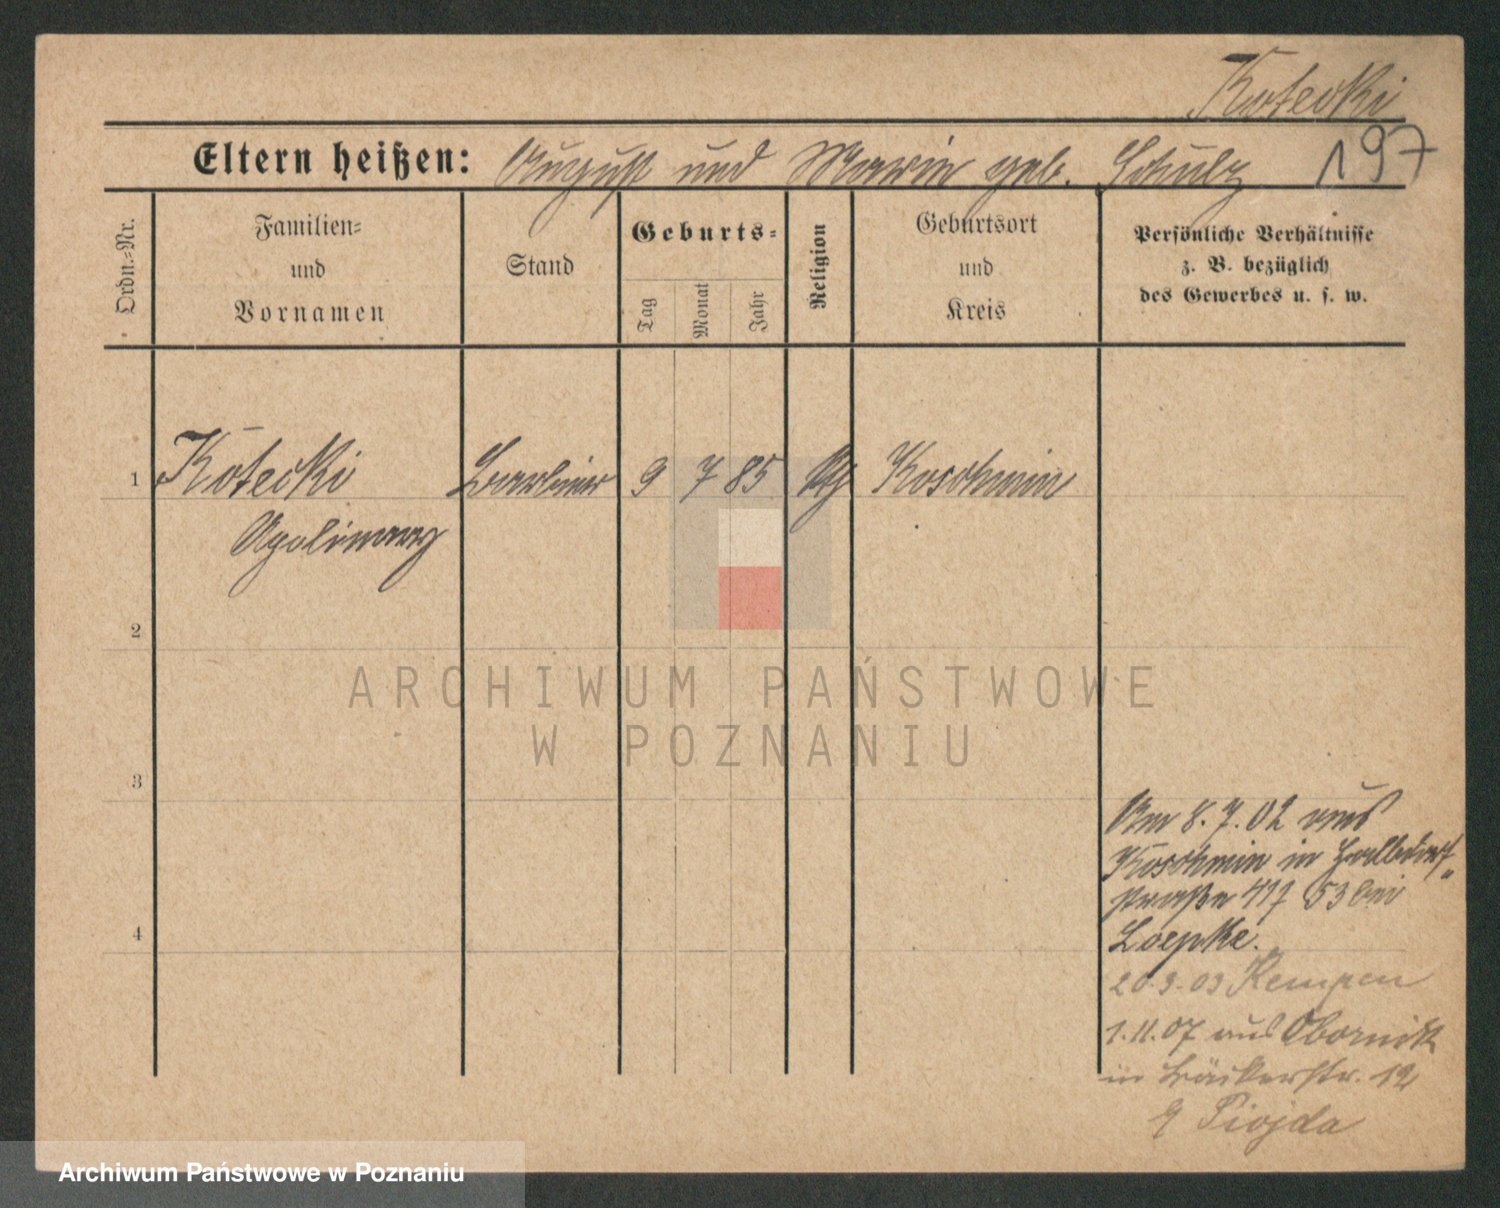 Kotecki
197
Eltern heißen: August und Marie geb. Schulz
Ordn.-Nr.
Familien-
und
Vornamen
Stand
Geburts-
Tag
Monat
Jahr
Religion
Geburtsort
und
Kreis
Persönliche Verhältnisse
z. B. bezüglich
des Gewerbes u. s. w.
1 Kotecki Barbier 9 7 85 Koschmin
Apolinary
2
3
4
Am 8.7.02 aus
Koschmin in Halbdorf-
straße 53 bei
Loepke.
20.3.03 Kempen
1.11.07 aus Obornik
in Bäckerstr. 12
Piojda
ARCHIWUM PAŃSTWOWE
W POZNANIU
Archiwum Państwowe w Poznaniu